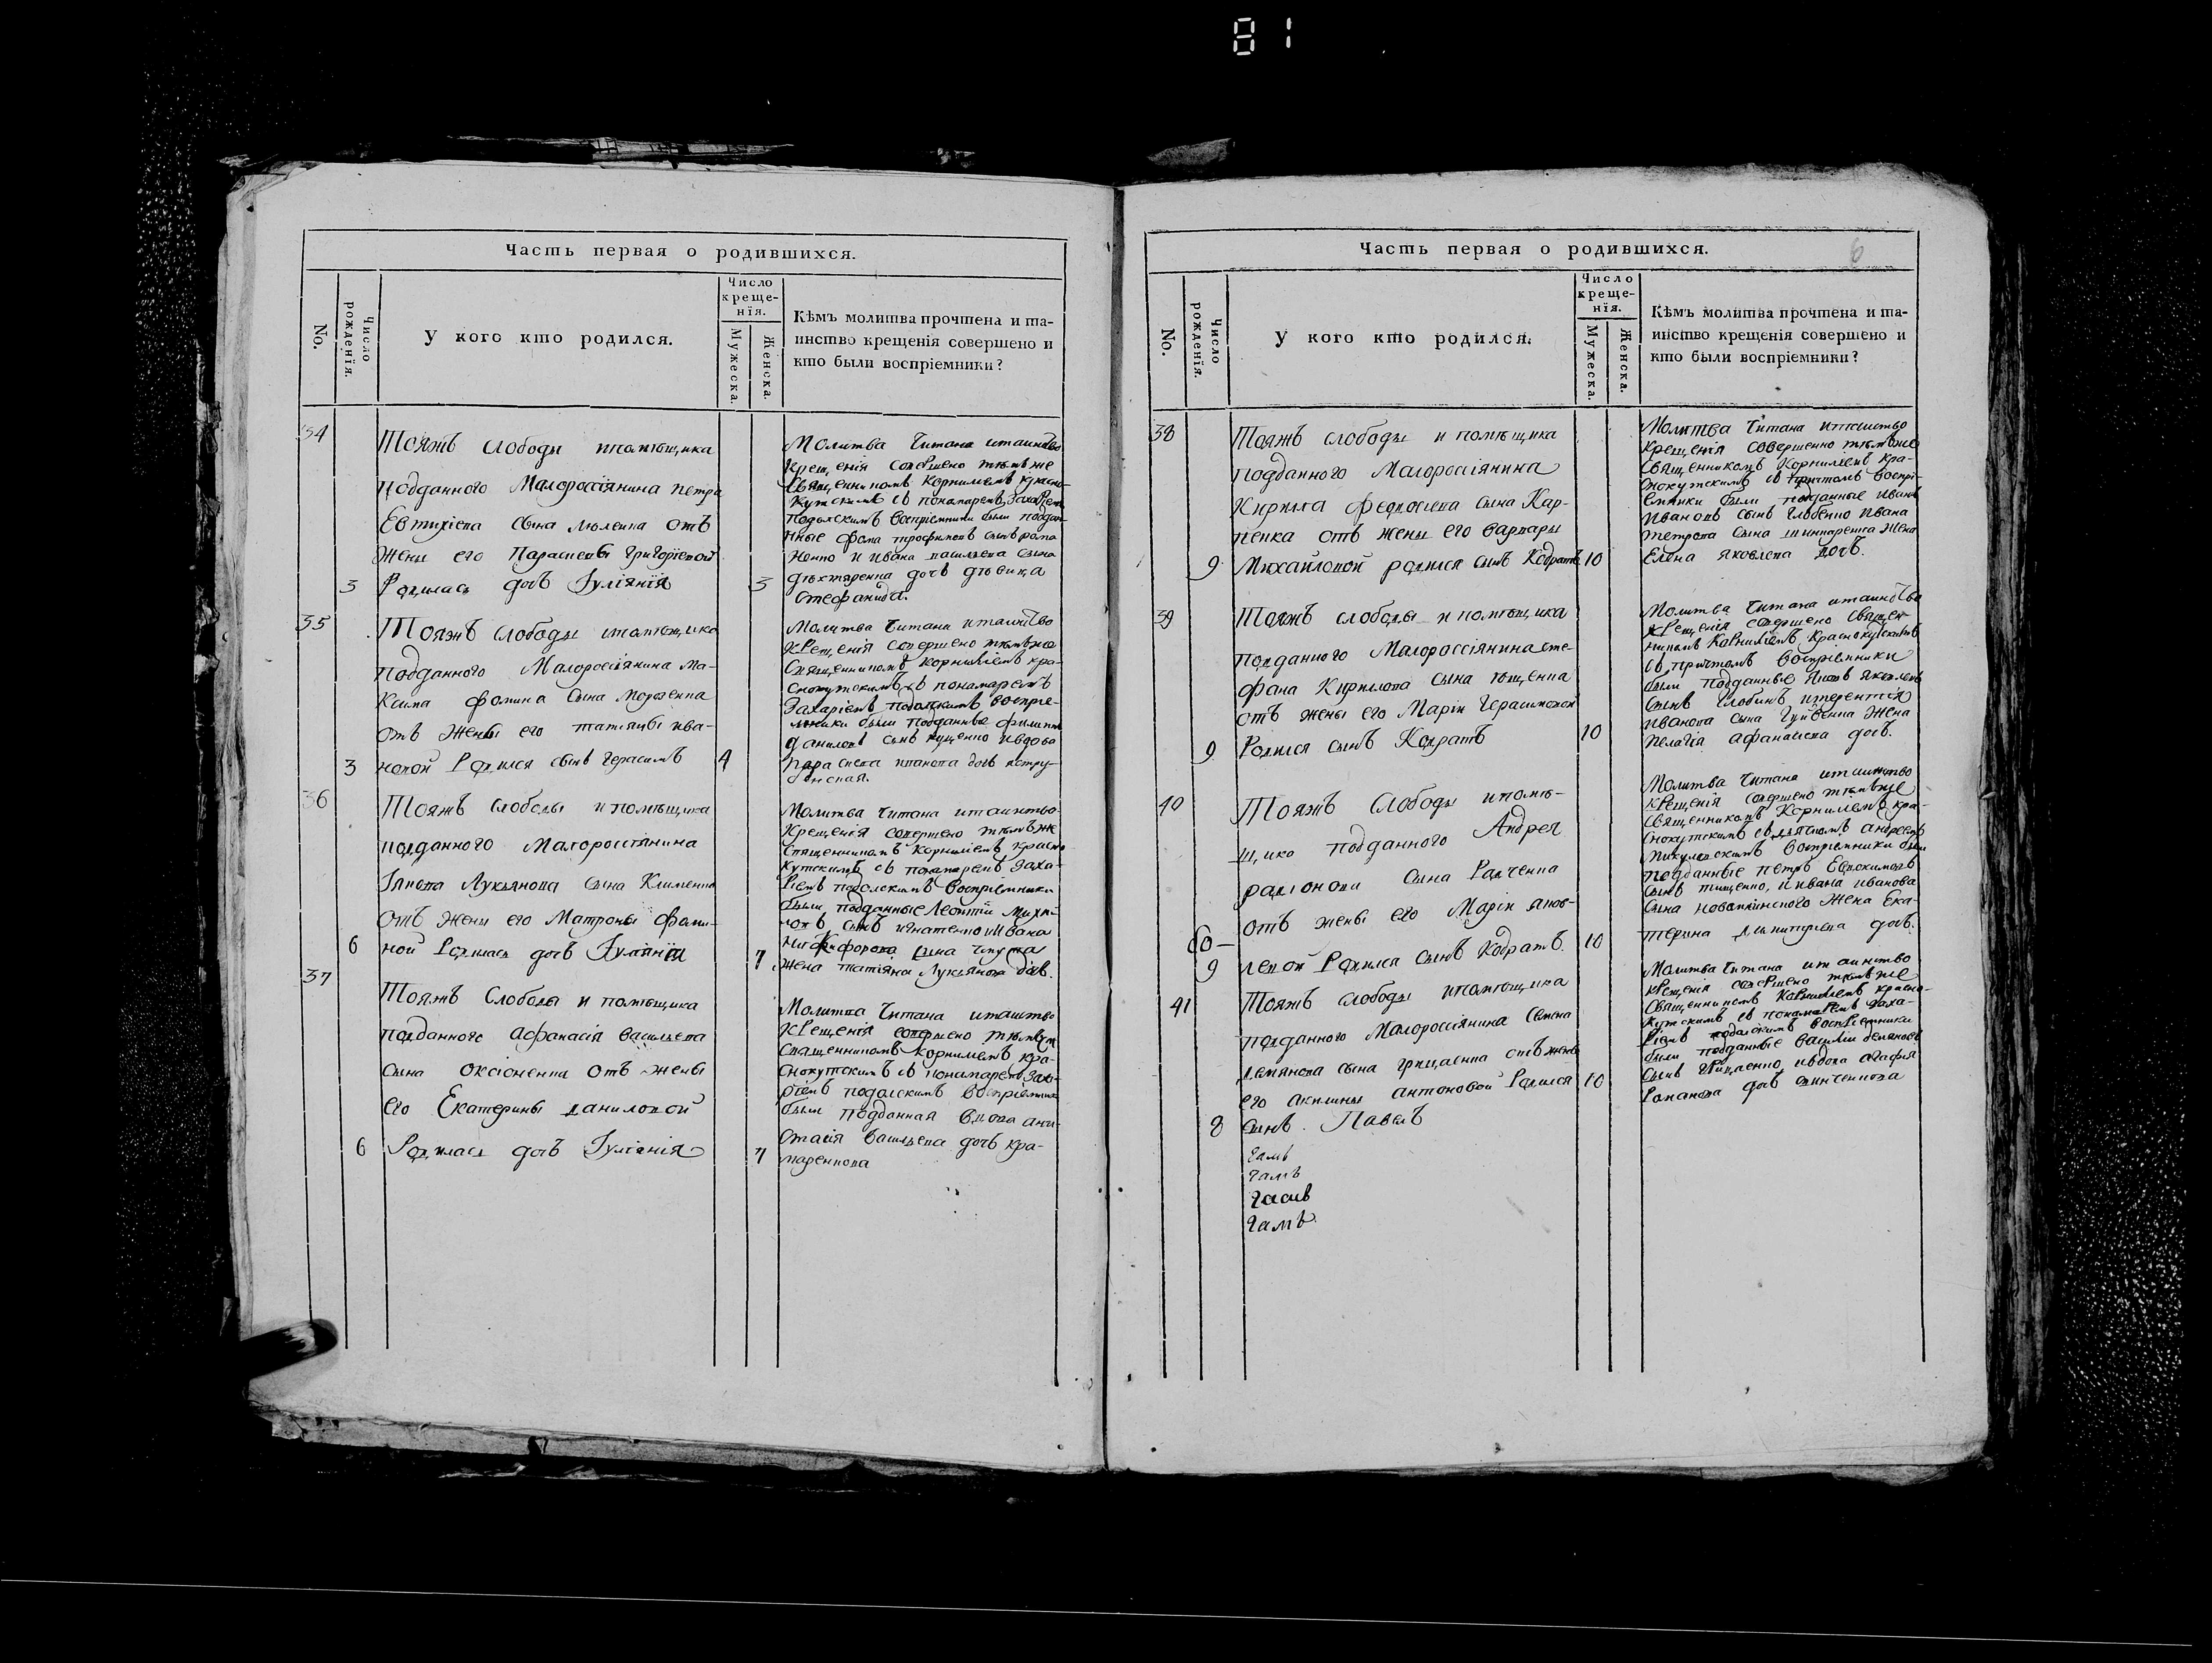 81
Часть первая о родившихся.
No.
Число рожденїя.
У кого кто родился.
Число
креще-
нїя.
Мужеска.
Женска.
Кѣмъ молитва прочтена и та-
инство крещенія совершено и
кто были воспріемники?
34
Тояжъ слободы ипомѣщика
подданного Малороссіянина петра
Евтихіева сына отъ
жены его Параскевы григоріевой
3 Родилась дочь Іуліянія 3
Молитва Читана итаинство
Крещенія совершено тѣмъ же
Священникомъ Корниліемъ красно-
Кутскимъ съ пономаремъ Захаріем
Подолскимъ воспріемники были поддан
нные фома трофимовъ сынъ рома
ненко и ивана васильева сына
дѣхтяренка дочь дѣвица
Стефанида.
35
Тояжъ Слободы ипомѣщика
подданного Малороссіянина Ма-
ксима фомина сына Морозенка
отъ Жены его татіяны ива-
3 новой Родился сынъ Герасимъ 4
Молитва Читана итаинство
Крещенія совершено тѣмъже
Священникомъ Корниліемъ кра-
снокутскимъ съ пономаремъ
Захаріемъ подолскимъ воспріе-
мники были подданные филиппъ
даниловъ сынъ ивдова
параскева иванова дочь
36
Тояжъ Слободы ипомѣщика
подданного Малороссіянина
Іякова Лукьянова сына Клименка
отъ Жены его Матроны фоми-
6 ной Родилась дочь Іуліянія 7
Молитва Читана итаинство
Крещенія совершено тѣмъ же
Священникомъ Корниліемъ красно
кутскимъ съ пономаремъ Заха-
ріемъ подолскимъ воспріемники
были подданные Леонтій Михай
ловъ сынъ игнатенко иИвана
Никифорова сына
жена татіяна Лукьянова дочь.
37
Тояжъ Слободы и помѣщика
подданного Афанасія васильева
сына оксіоненка отъ жены
его Екатерины даниловой
6 Родилась дочь Іуліянія 7
Молитва Читана итаинство
Крещенія совершено тѣмъже
Священникомъ Корниліемъ кра-
снокутскимъ съ пономаремъ Заха-
ріемъ подолскимъ воспріемники
были подданная вдова ана-
стасія васильева дочь кра-
маренкова
Часть первая о родившихся.
6
No.
Число рожденїя.
У кого кто родился.
Число
креще-
нїя.
Мужеска.
Женска.
Кѣмъ молитва прочтена и та-
инство крещенія совершено и
кто были воспріемники?
38
Тояжъ слободы и помѣщика
подданного Малороссіянина
Кирила федосіева сына Кар-
пенка отъ жены его варвары
9 Михайловой родился сынъ Кодратъ 10
Молитва Читана итаинство
крещенія совершенно тѣмъже
Священникомъ Корниліемъ кра-
снокутскимъ съ притомъ воспрі-
емники были подданные иванъ
ивановъ сынъ глобенко ивана
петрова сына жена
Елена яковлева дочь.
39
Тояжъ слободы и помѣщика
подданного Малороссіянина сте-
фана Кирилова сына
отъ жены его Маріи Герасимовой
9 Родился сынъ Кодратъ 10
Молитва Читана итаинство
Крещенія совершено Священ-
никомъ Корниліемъ Краснокутскимъ
съ притомъ воспріемники
были подданные яковъ яковлевъ
сынъ итерентія
иванова сына жена
пелагія афанасіева дочь.
40
Тояжъ Слободы ипомѣ-
щика подданного Андрея
радіонова сына Радченка
отъ жены его Маріи яков-
9 левой Родился сынъ Кодратъ. 10
Молитва Читана итаинство
Крещенія совершено тѣмъже
Священникомъ Корниліемъ кра-
снокутскимъ съ дьячкомъ андреемъ
воспріемники были
подданные петръ Евдокимовъ
сынъ тищенко, и ивана иванова
сына жена Ека-
терина димитріева дочь.
41
Тояжъ слободы ипомѣщика
подданного Малороссіянина Семена
демянова сына грицаенка отъ жены
его акилины антоновой Родился 10
8 сынъ. Павелъ
Молитва Читана итаинство
Крещенія совершено тѣмъже
Священникомъ Корниліемъ красно-
кутскимъ съ пономаремъ Заха-
ріемъ подолскимъ воспріемники
были подданные василій демяновъ
сынъ грицаенко, ивдова агафія
Романова дочь